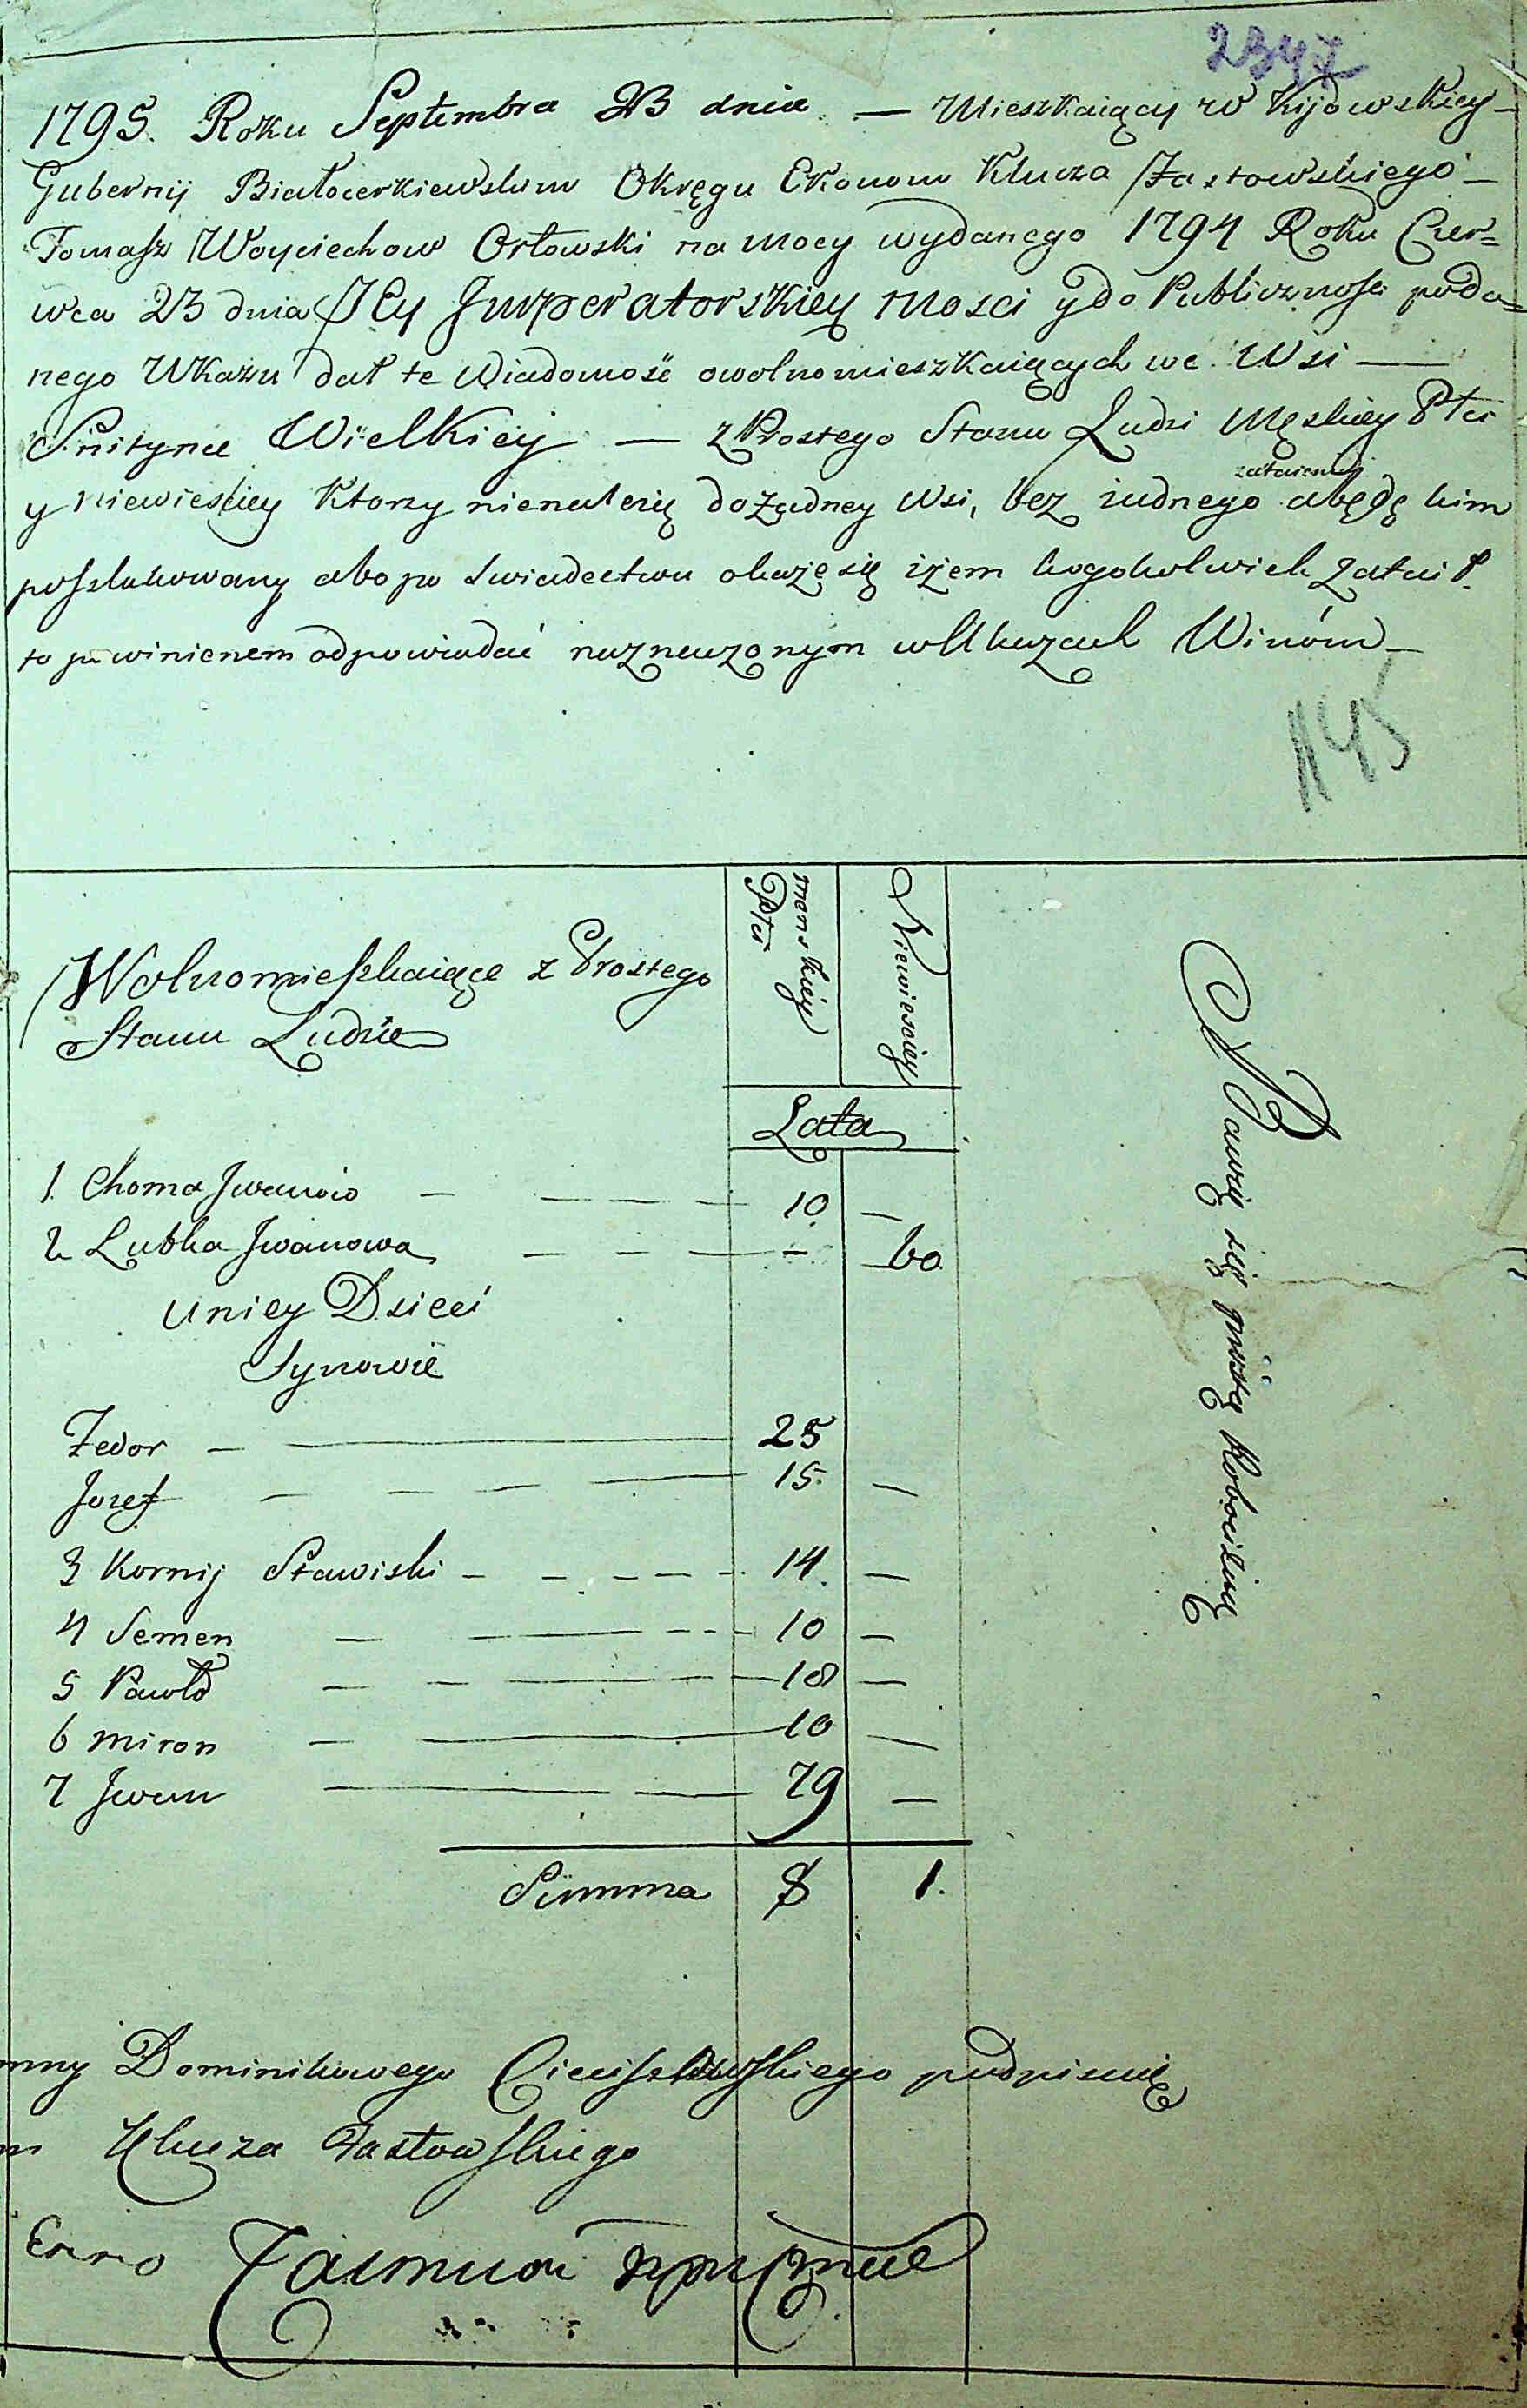 2347
1795. Roku Septembra 23 dnia. — Mieszkaiący w Kijowskiey —
Gubernij Białocerkiewskim Okręgu Ekonom Klucza Fastowskiego —
Tomasz Woyciechow Orłowski na mocy wydanego 1794 Roku Czer=
wca 23 dnia JEy Imperatorskiey Mosci y do Publicznosci poda=
nego Ukazu dał te Wiadomość o wolnomieszkaiących we Wsi —
Snitynce Wielkiey — z Prostego Stanu Ludzi Męskiey Płci
zataienia
y Niewieskiey Ktorzy nienależią do Żadney Wsi, bez żadnego a będę kim
poszlakowany abo po swiadectwu okaże się iżem kogokolwiek zataił.
to powinienem odpowiadać naznaczonym w Ukazach Winóm —
1145
Wolnomieszkaiące z Prostego
Stanu Ludzie
menskiey
Płci
Niewiesciey
Lata
1. Choma Jwanow — — — 10. —
2 Lubka Jwanowa — — — — 60
u niey Dzieci
Synowie
Fedor — — 25
Jozef — — — — 15. —
3 Kornij Stawiski — — — — 14. —
4 Semen — — — 10 —
5 Pawło — — — 18 —
6 Miron — — 10 —
7 Jwan — — 79 —
Summa 8 1.
Bawią się prostą Robocizną
Dominikowego podpisuię
Klucza Fastowskiego